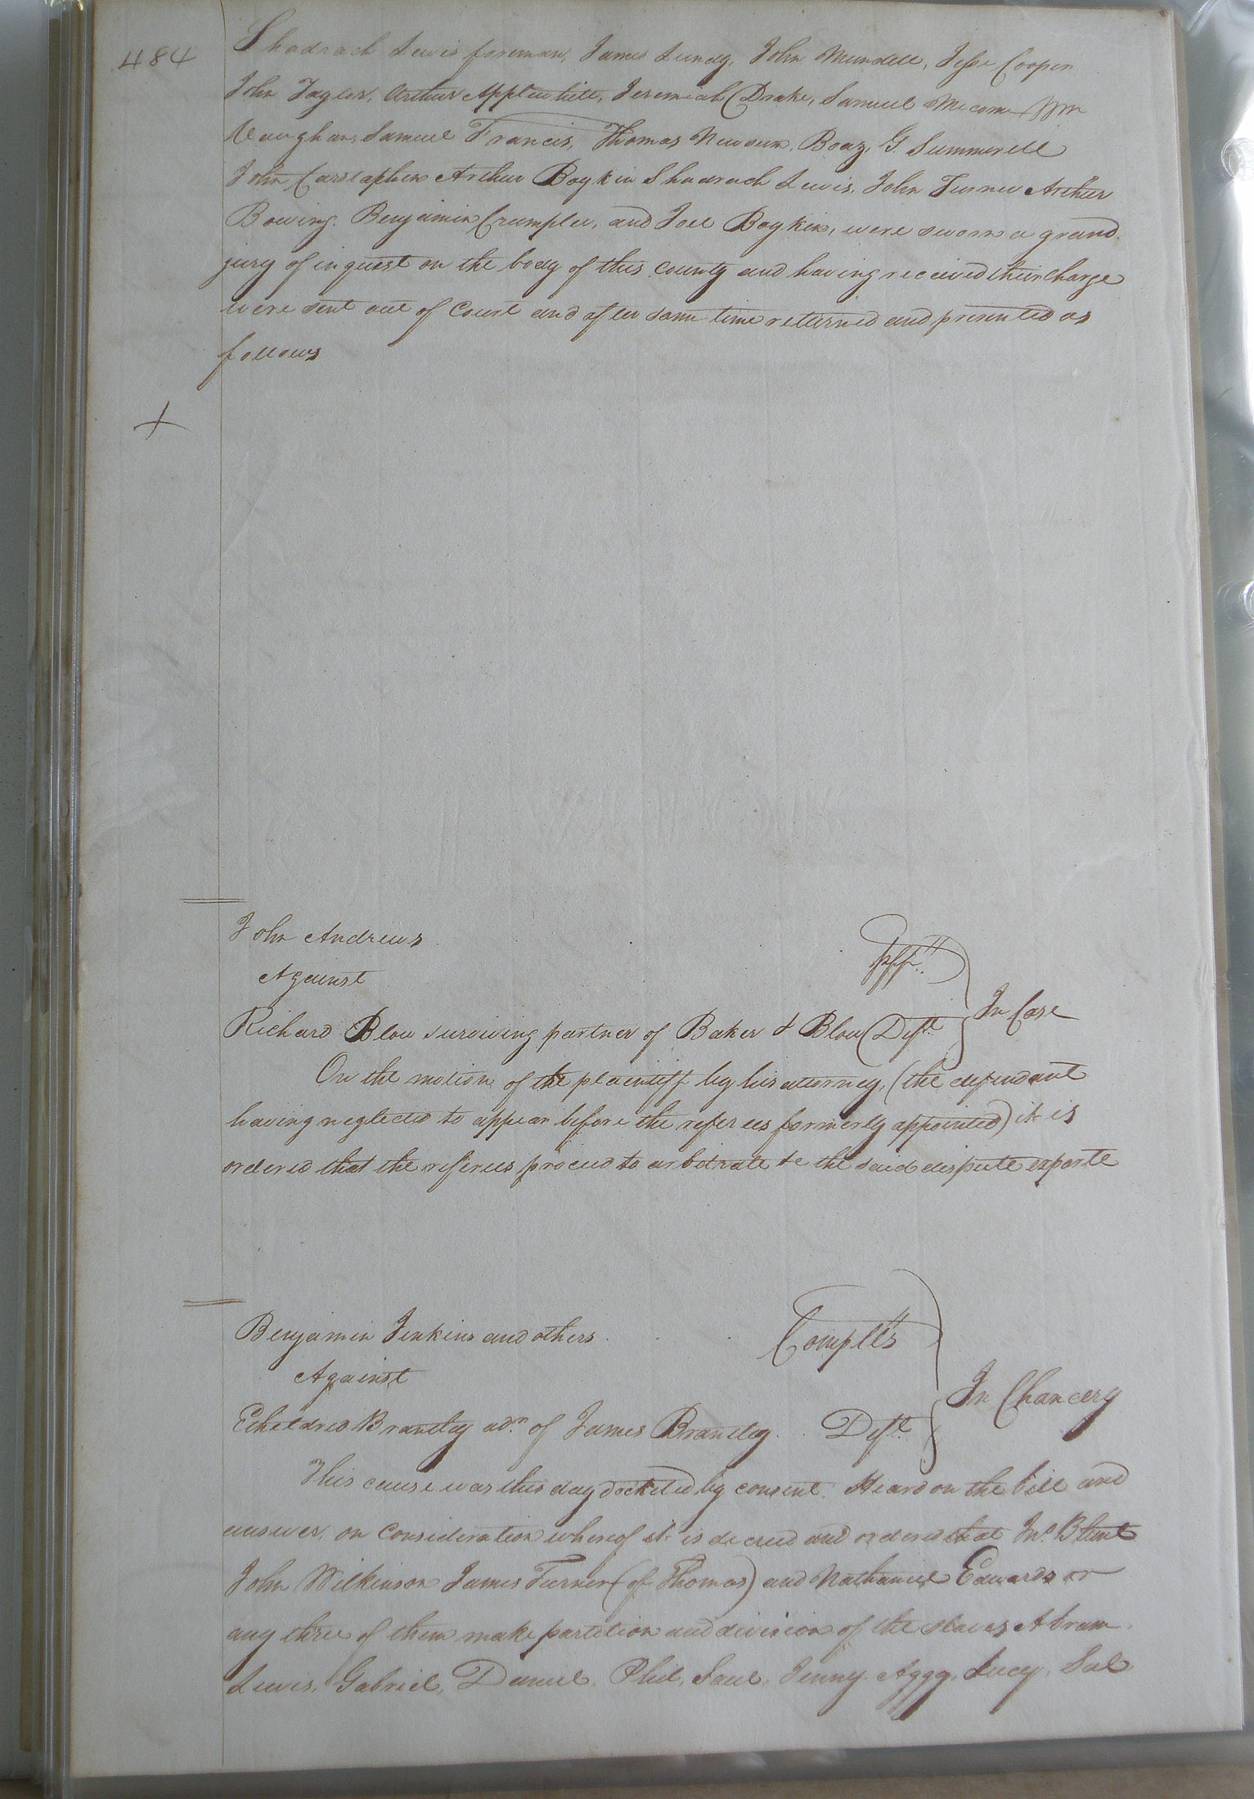 484
Shadrach Lewis foreman, James Lundy, John Mundell, Jesse Cooper
John Taylor, Arthur Applewhite, Jeremiah Drake, Samuel Mecom Wm
Vaughan, Samuel Francis, Thomas Newsum, Boaz, G Summerell
John Carstaphen Arthur Boykin Shadrach Lewis, John Turner Arthur
Bowing. Benjamin Crumpler, and Joel Boykin, were sworn a grand
jury of inquest on the body of this county and having received their charge
were sent out of Court and after some time returned and presented as
follows
John Andrews
Pltff
Against
In Case
Richard Blow surviving partner of Baker & Blow Deft
On the motion of the plaintiff by his attorney, (the defendant
having neglected to appear before the referees formerly appointed) it is
ordered that the referees proceed to arbitrate &c the said dispute exparte
Benjamin Jenkins and others.
Complts
Against
In Chancery
Etheldred Brantley adr. of James Brantley. Deft.
This cause was this day docketed by consent. Heard on the bill and
answer, on consideration whereof it is decreed and ordered that Jno. Blunt
John Wilkinson James Turner (of Thomas) and Nathaniel Edwards or
any three of them make partition and division of the slaves Abram,
Lewis, Gabriel, Daniel, Phil, Saul, Jinny, Aggy, Lucy, Sal